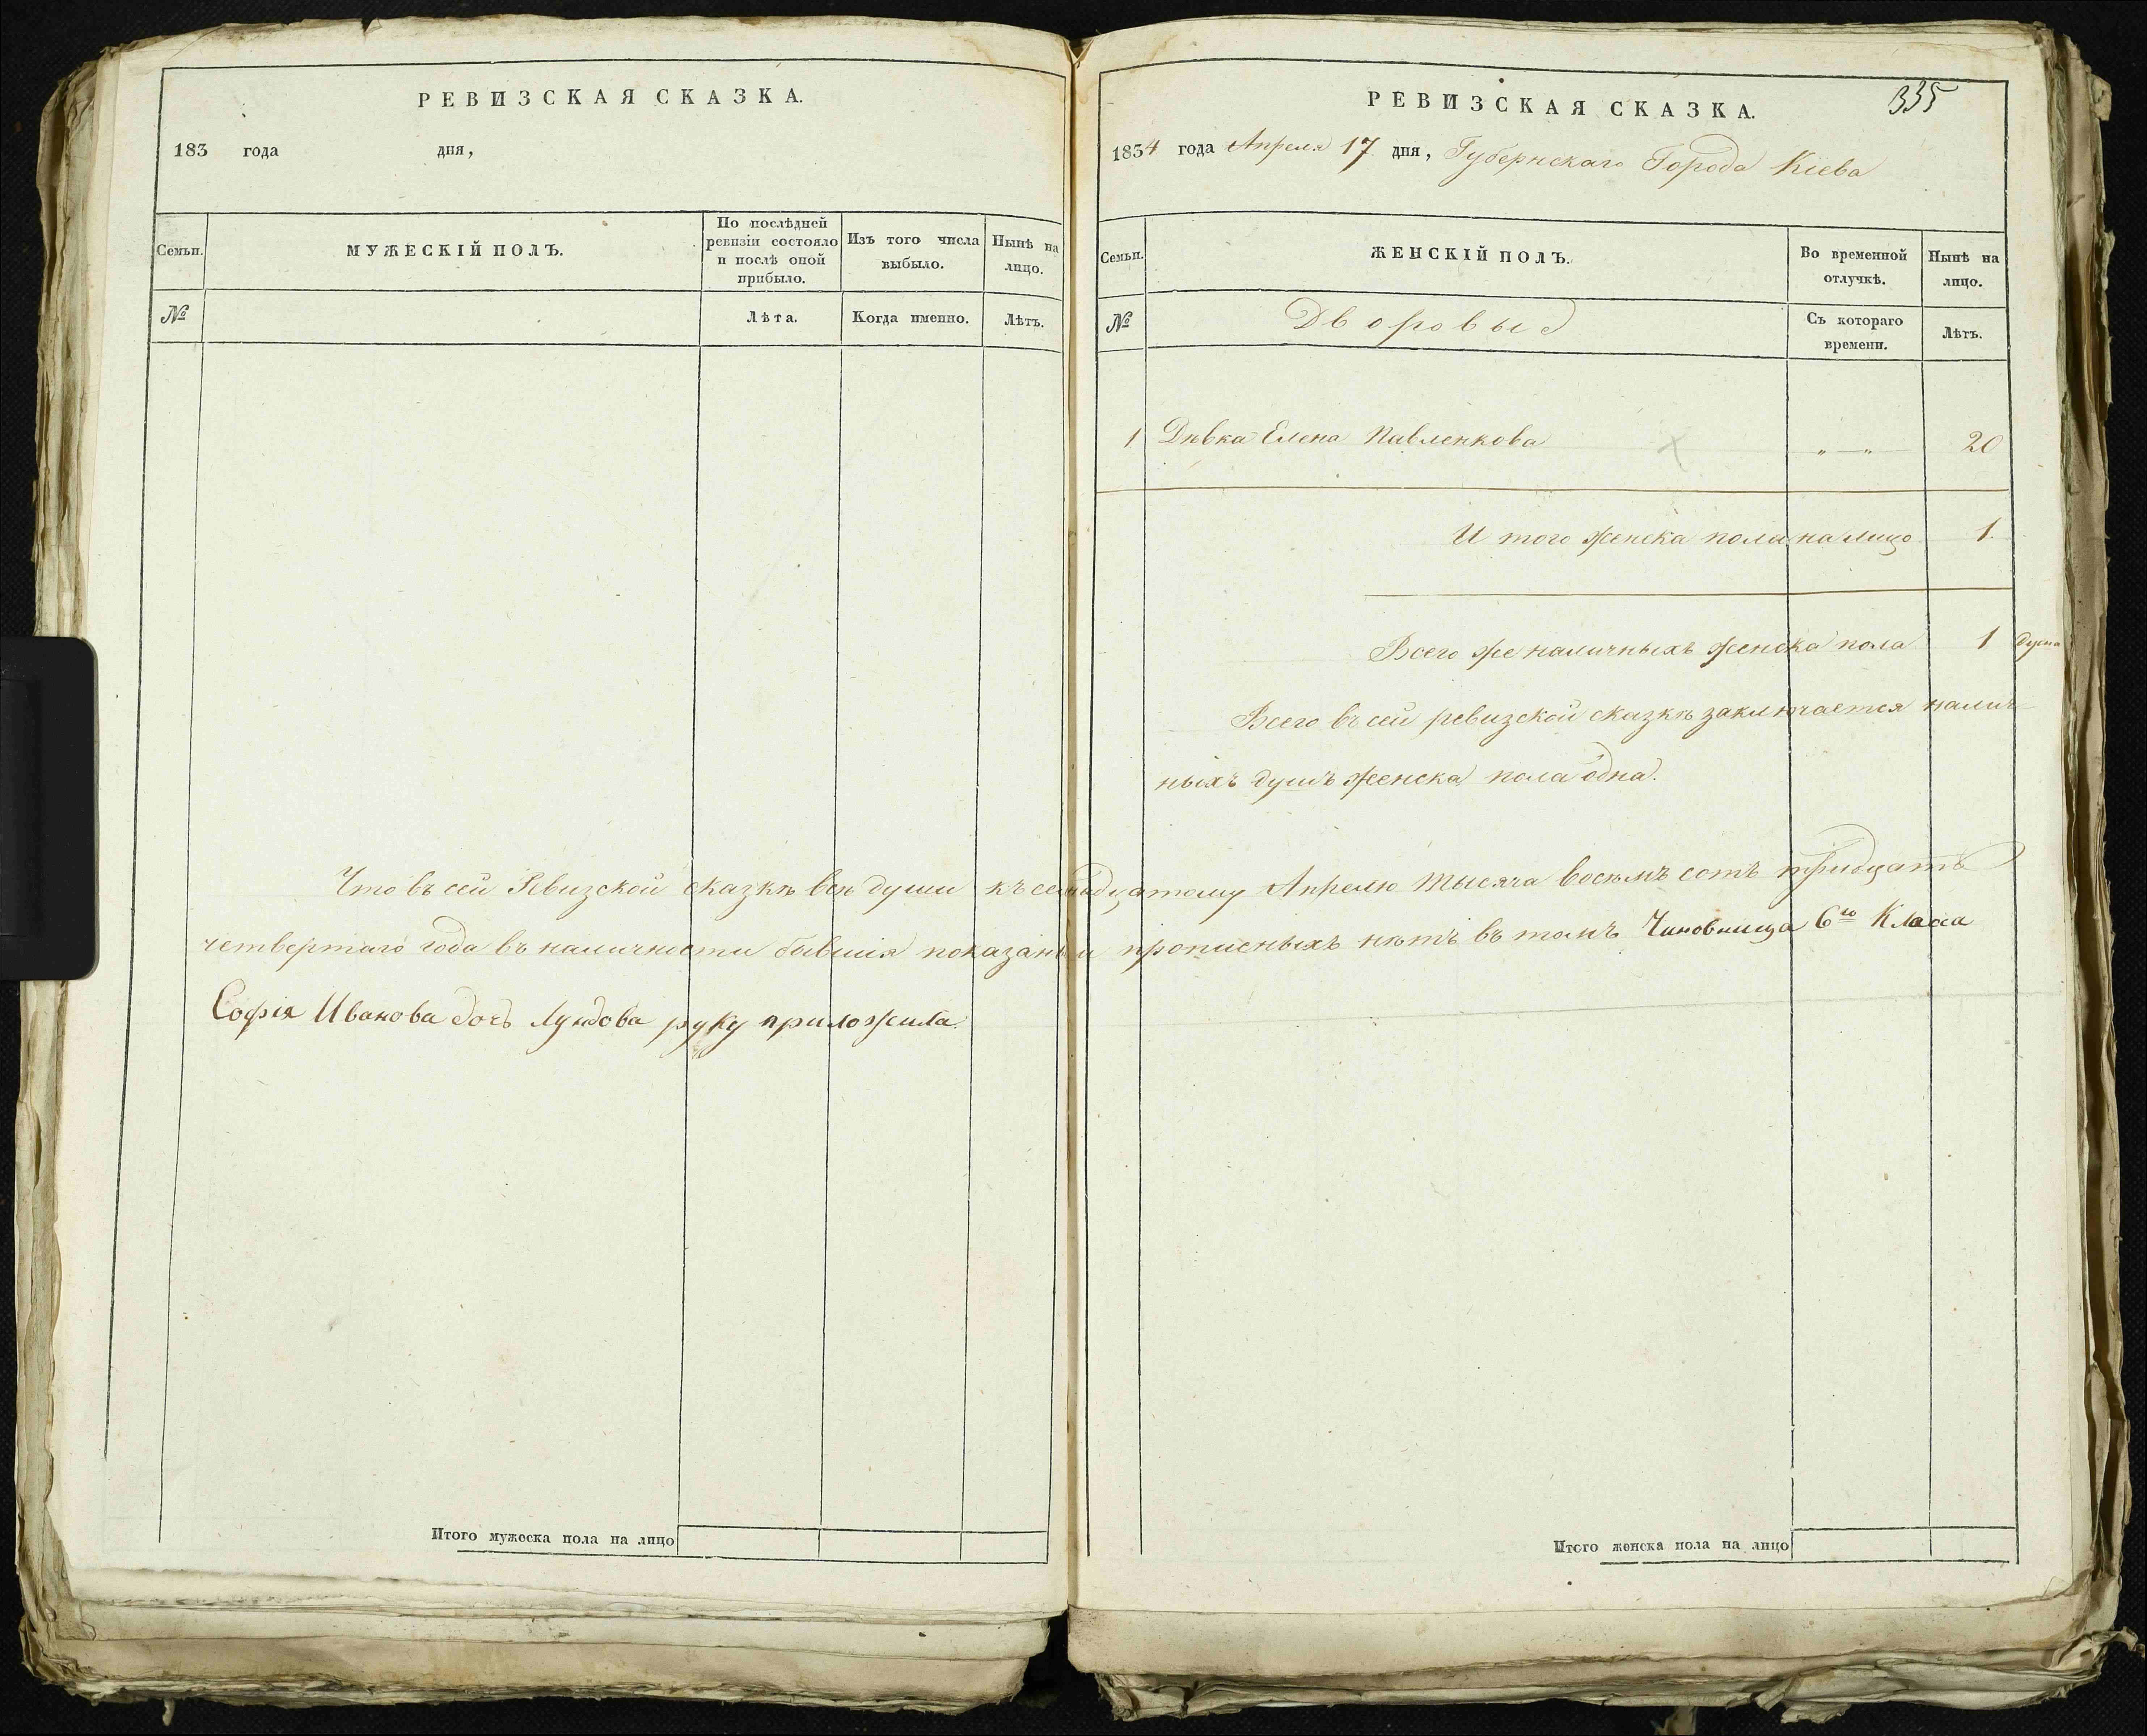 РЕВИЗСКАЯ СКАЗКА.
183 года дня,
Семьи.
МУЖЕСКІЙ ПОЛЪ.
По послѣдней ревизіи состояло и послѣ оной прибыло.
Изъ того числа выбыло.
Нынѣ на лицо.
№
Лѣта.
Когда именно.
Лѣтъ.
Итого мужеска пола на лицо
335
РЕВИЗСКАЯ СКАЗКА.
1834 года Апреля 17 дня, Губернскаго Города Кіева
Семьи.
ЖЕНСКІЙ ПОЛЪ.
Во временной отлучкѣ.
Нынѣ на лицо.
№
Дворовыя
Съ котораго времени.
Лѣтъ.
1 Дѣвка Елена Павленкова „ — „ 20
И того женска пола на лицо 1.
Всего же наличныхъ женска пола 1 душа
Всего въ сей ревизской сказкѣ заключается налич-
ныхъ душъ женска пола одна.
Что въ сей Ревизской сказкѣ всѣ души къ семнадцатому Апрелю тысяча восемъ сотъ тридцать
четвертаго года въ наличности бывшія показаны и прописныхъ нѣтъ въ томъ Чиновница 6го Класса
Софія Иванова дочь Лундова руку приложила.
Итого женска пола на лицо